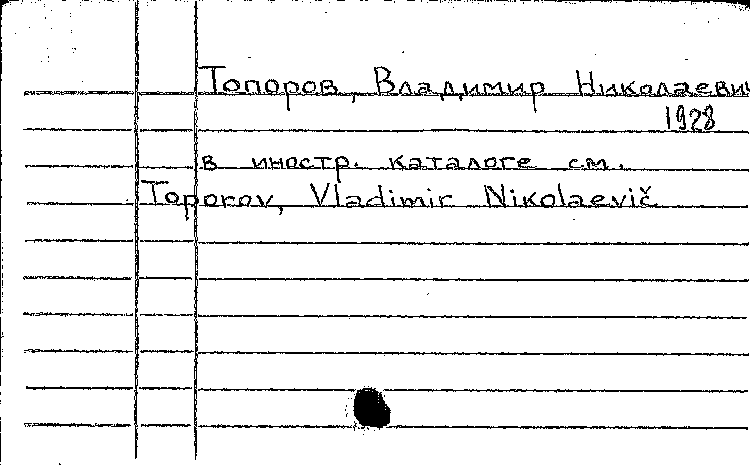 Топоров, Владимир Николаевич
1928
в иностр. каталоге см.
Toporov, Vladimir Nikolaevič